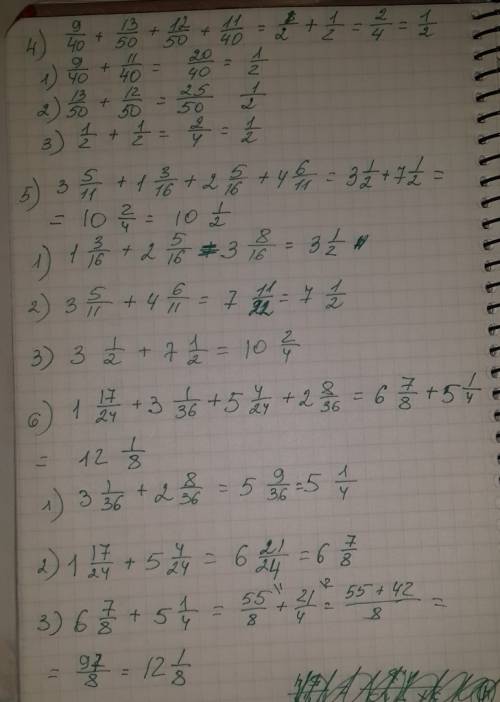 4) 9/40 + 13/50 + 12/50 + 11/40 = 1/2 + 1/2 = 2/4 = 1/2
1) 9/40 + 11/40 = 20/40 = 1/2
2) 13/50 + 12/50 = 25/50 1/2
3) 1/2 + 1/2 = 2/4 = 1/2
5) 3 5/11 + 1 3/16 + 2 5/16 + 4 6/11 = 3 1/2 + 7 1/2 =
= 10 2/4 = 10 1/2
1) 1 3/16 + 2 5/16 = 3 8/16 = 3 1/2
2) 3 5/11 + 4 6/11 = 7 11/22 = 7 1/2
3) 3 1/2 + 7 1/2 = 10 2/4
6) 1 17/24 + 3 1/36 + 5 4/24 + 2 8/36 = 6 7/8 + 5 1/4
= 12 1/8
1) 3 1/36 + 2 8/36 = 5 9/36 = 5 1/4
2) 1 17/24 + 5 4/24 = 6 21/24 = 6 7/8
3) 6 7/8 + 5 1/4 = 55/8 + 21/4 = 55 + 42/8 =
= 97/8 = 12 1/8